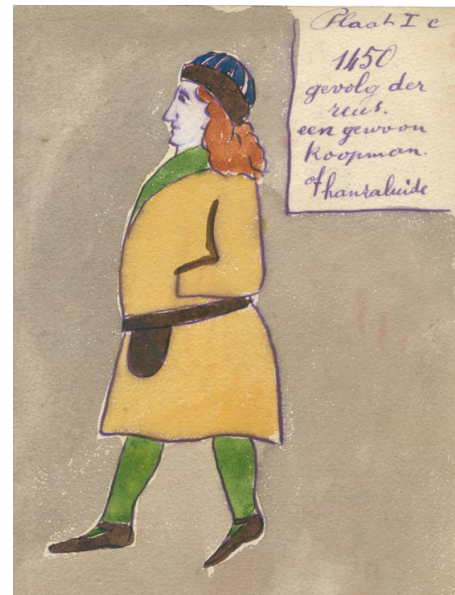 Plaat I c
1450
gevolg der
reus.
een gewoon
koopman.
of hanzaluide